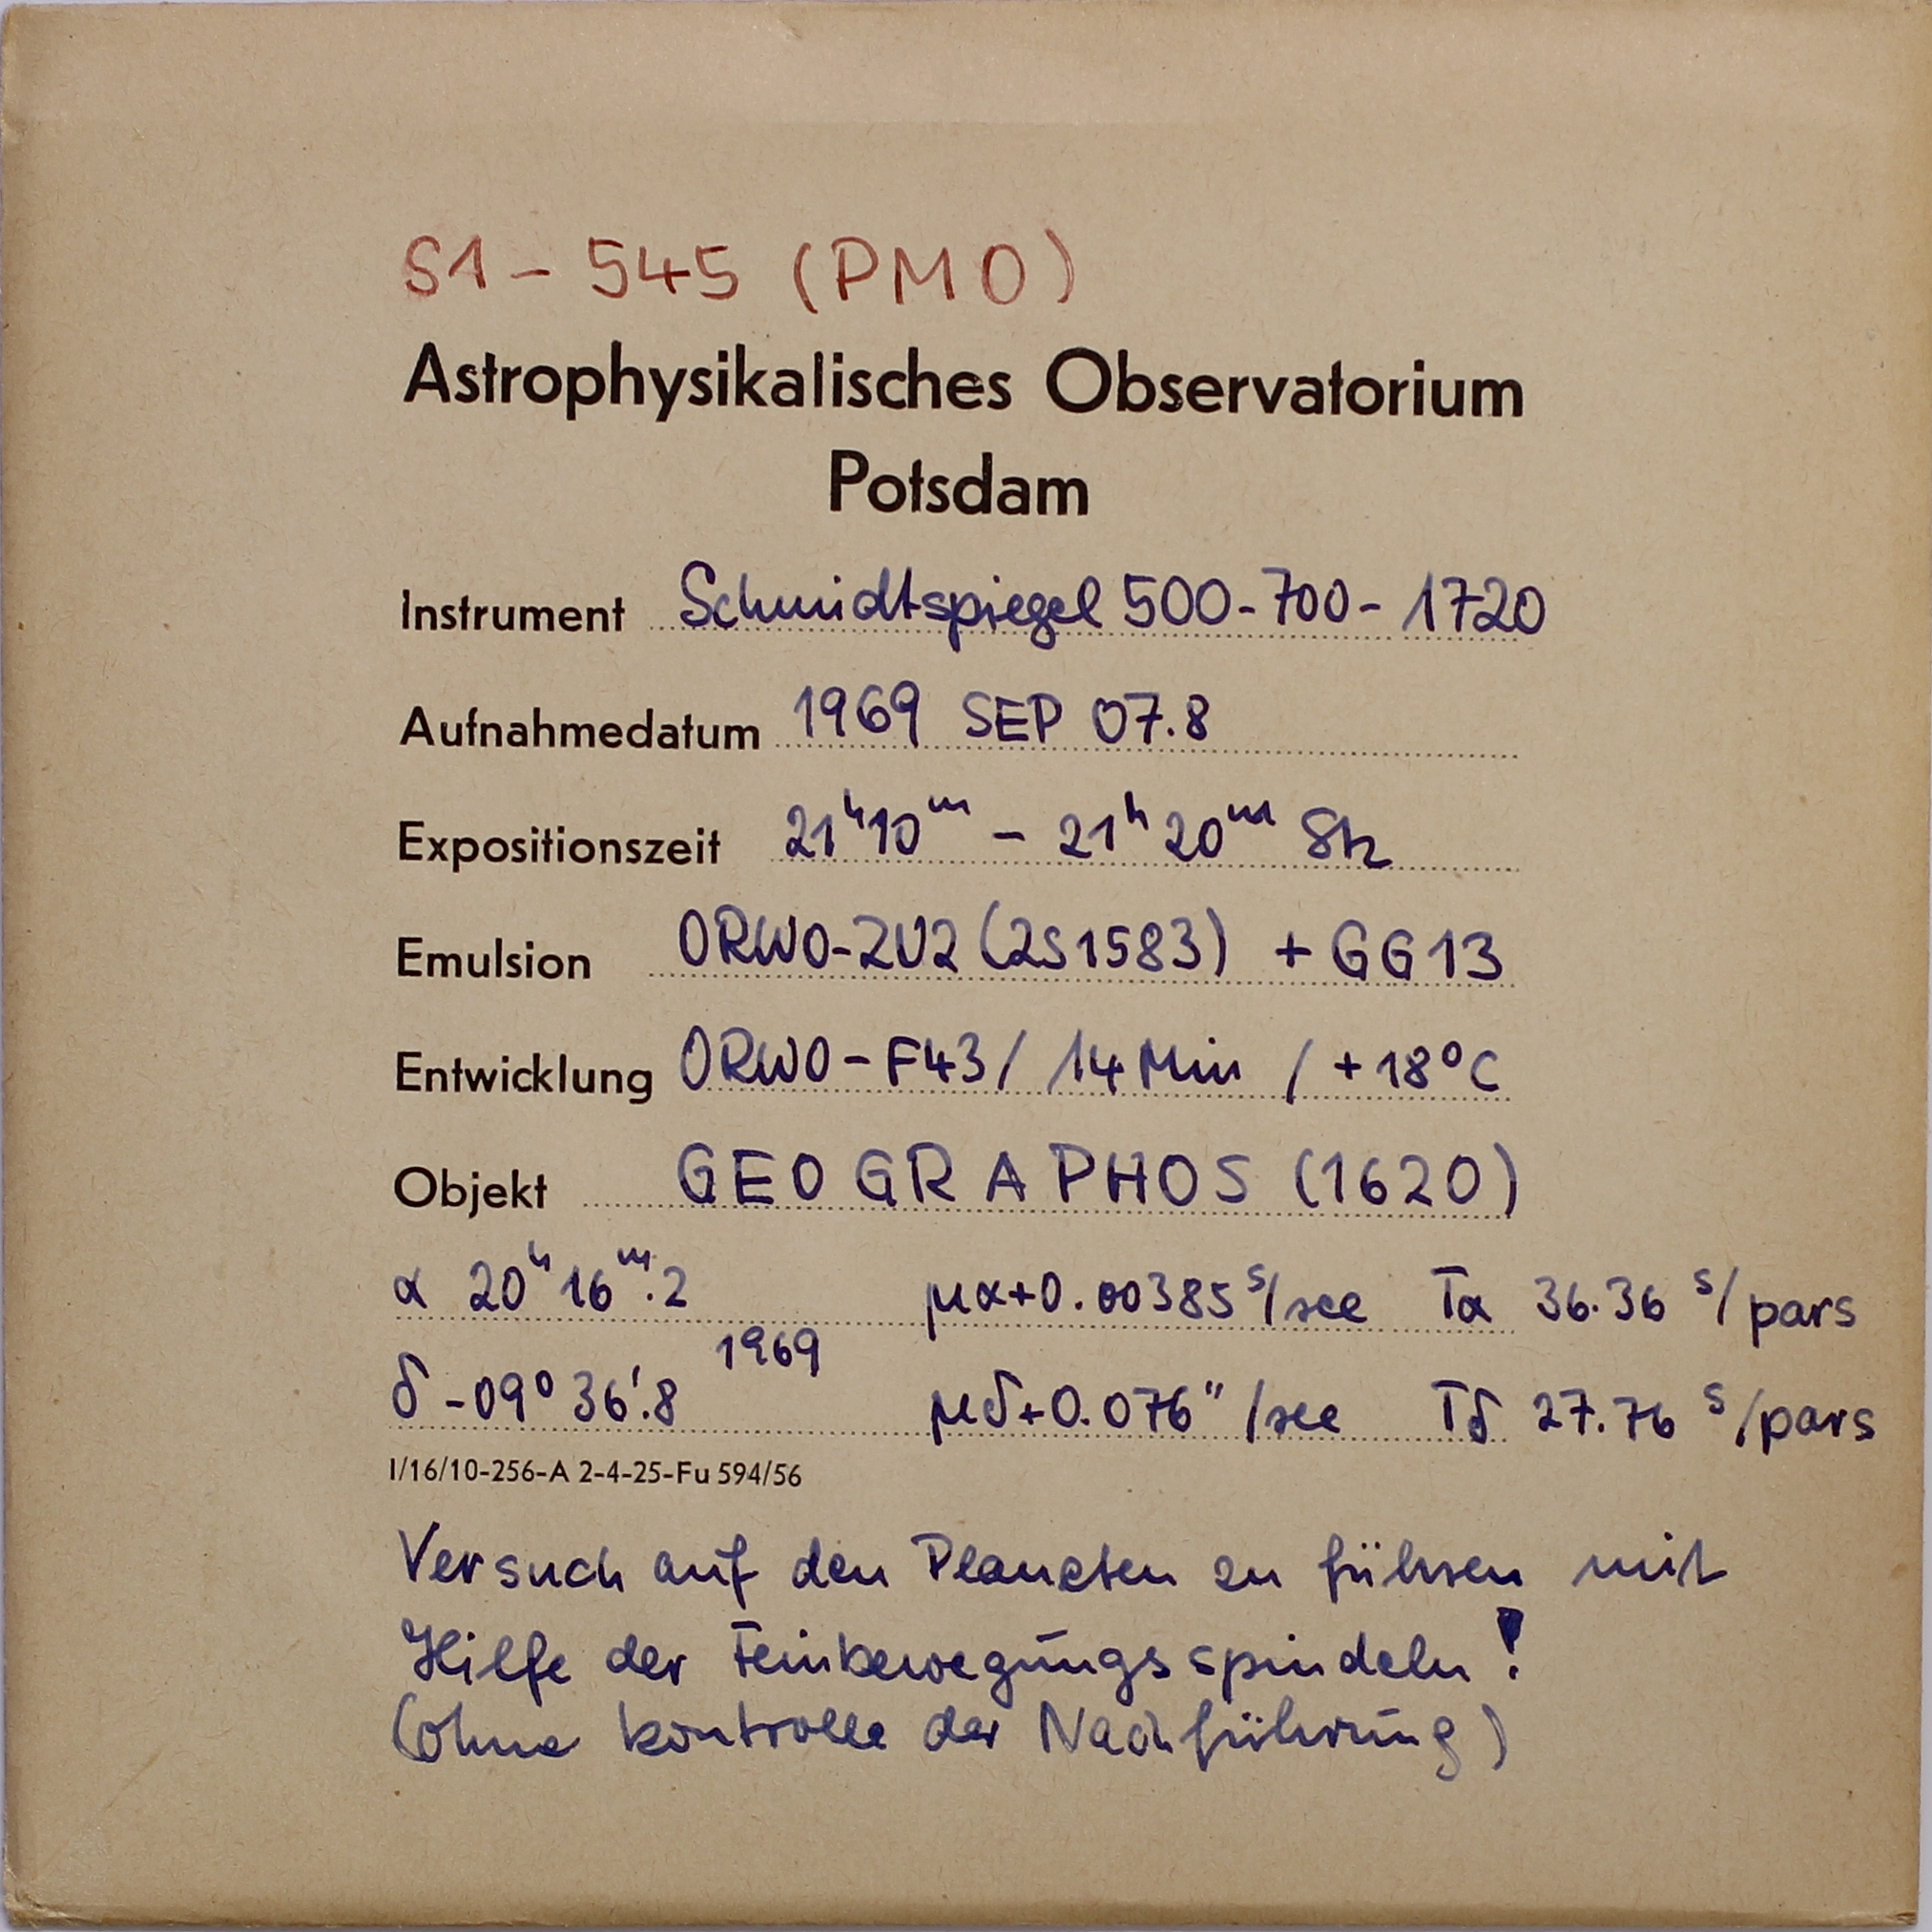 S1 - 545 (PMO)
Astrophysikalisches Observatorium
Potsdam
Instrument Schmidtspiegel 500-700-1720
Aufnahmedatum 1969 SEP 07.8
Expositionszeit 21ʰ10ᵐ - 21ʰ20ᵐ
Emulsion ORWO-ZU2 (2S1583) + GG13
Entwicklung ORWO-F43 / 14 Min / +18°C
Objekt GEOGRAPHOS (1620)
α 20ʰ16ᵐ.2 μα+0.00385ˢ/sec Tα 36.36 ˢ/pars
1969
δ -09°36'.8 μδ+0.076"/sec Tδ 27.76 ˢ/pars
I/16/10-256-A 2-4-25-Fu 594/56
Versuch auf den Planeten zu führen mit
Hilfe der Feinbewegungsspindeln!
(ohne Kontrolle der Nachführung)